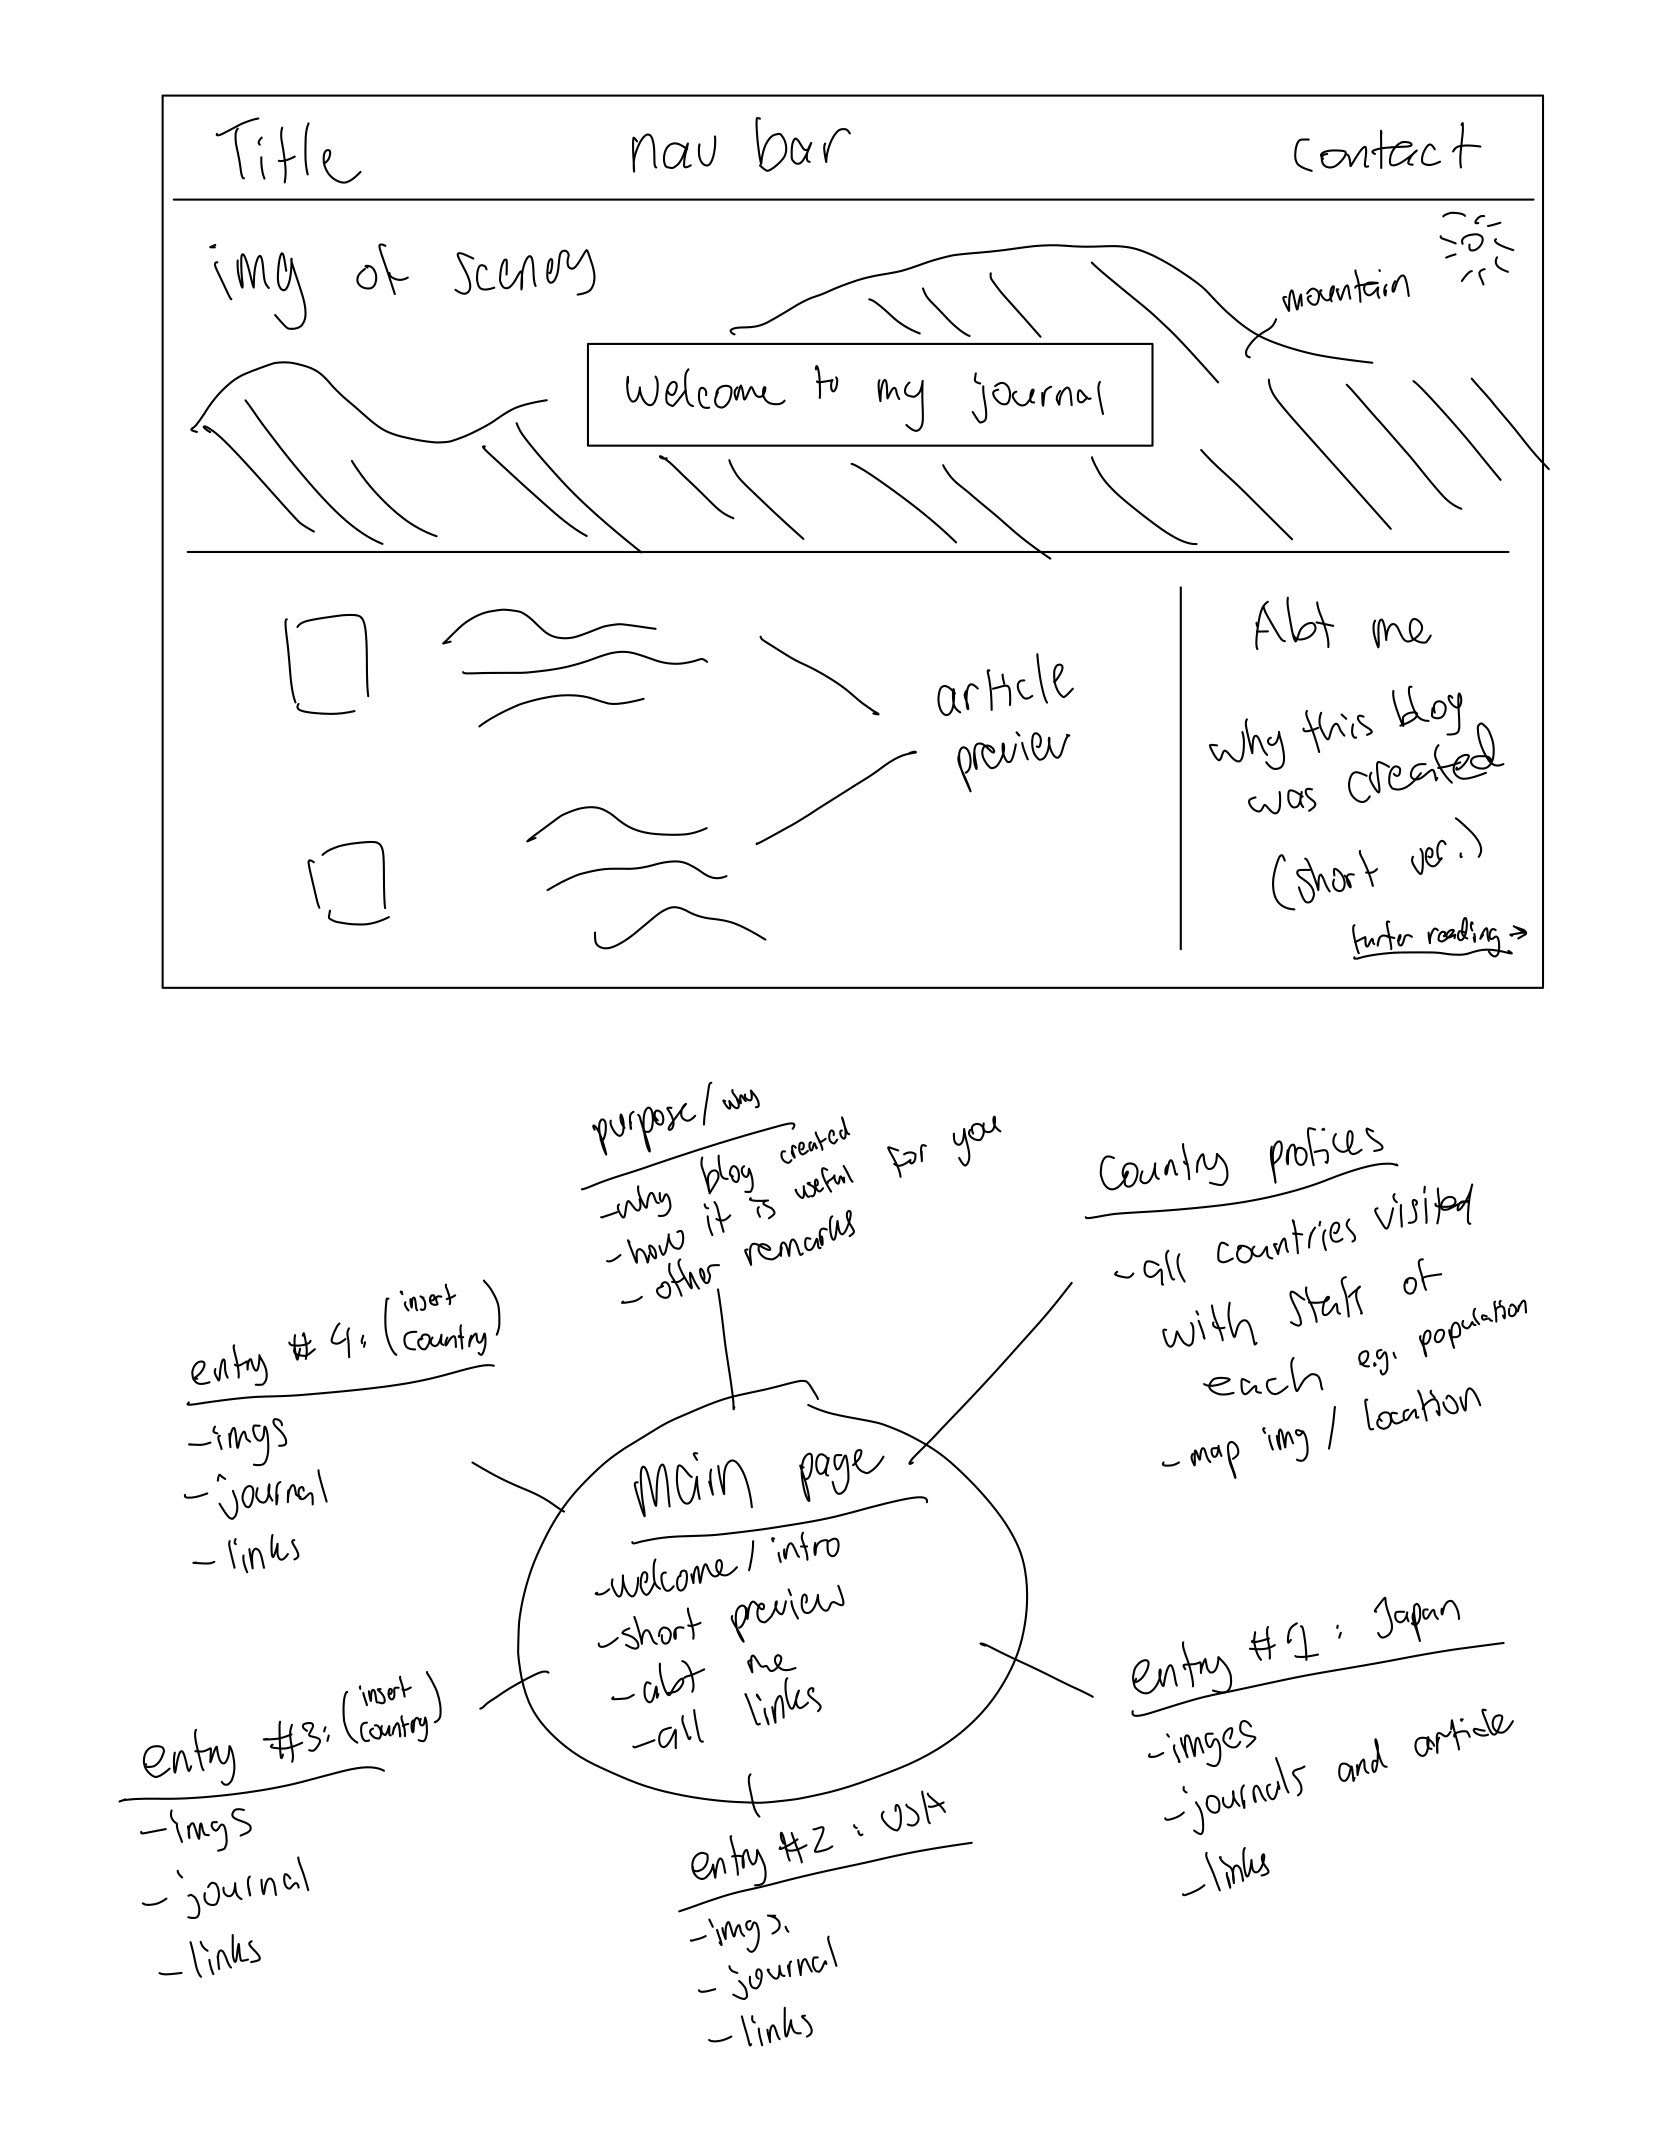 Title nav bar contact
img of scenery
mountain
Welcome to my journal
article
preview
Abt me
why this blog
was created
(short ver.)
reading →
purpose/why
-why blog created
-how it is useful for you
- other remarks
Country profiles
-all countries visited
with stats of
each e.g. population
-map img / location
entry #4: (insert
country)
-imgs
-journal
-links
main page
-welcome/intro
-short preview
-abt me
-all links
entry #1: Japan
-imges
-journals and article
-links
entry #3: (insert
country)
-imgs
-journal
-links
entry #2: USA
-imgs.
-journal
-links